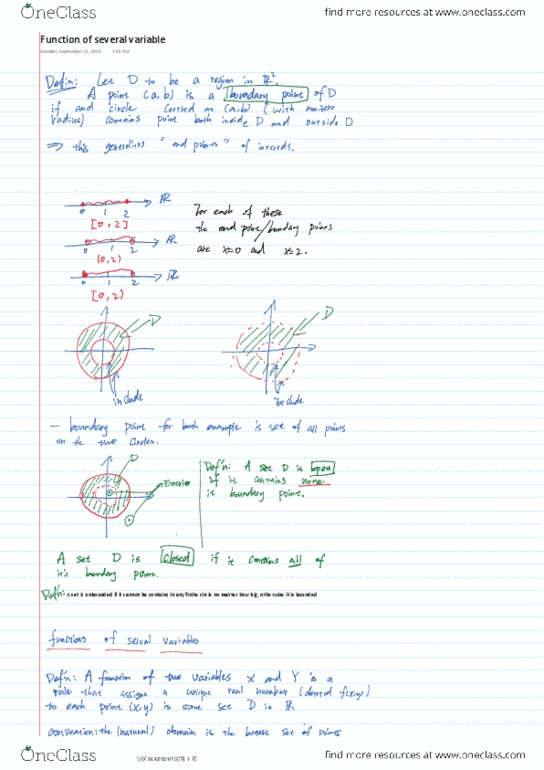 OneClass
find more resources at www.oneclass.com
Function of several variable
Monday, September 21, 2015
Def'n: Let D to be a region in R².
A point (a,b) is a boundary point of D
if and circle centred on (a,b) (with nonzero
radius) contains point both inside D and outside D
⇒ this "end points" of
0 1 2 R
[0,2]
0 1 2 R
(0,2)
0 1 2 R
[0,2)
For each of these
the end point/boundary points
are x=0 and x=2.
D
include
D
Exclude
— boundary point for both example is set of all points
on the two circles.
D
Exterior
Def'n: A set D is open
if it contains none
it boundary point.
A set D is closed if it contains all of
it's boundary point.
Def'n: A set is unbounded if it cannot be contains in any finite circle no matter how big, otherwise it is bounded
functions of serval variables
Def'n: A function of two variables X and Y is a
rule that assigns a unique real number (denoted f(x,y))
to each point (x,y) is some set D in R
convention: the (natural) domain is the set of points
OneClass
find more resources at www.oneclass.com